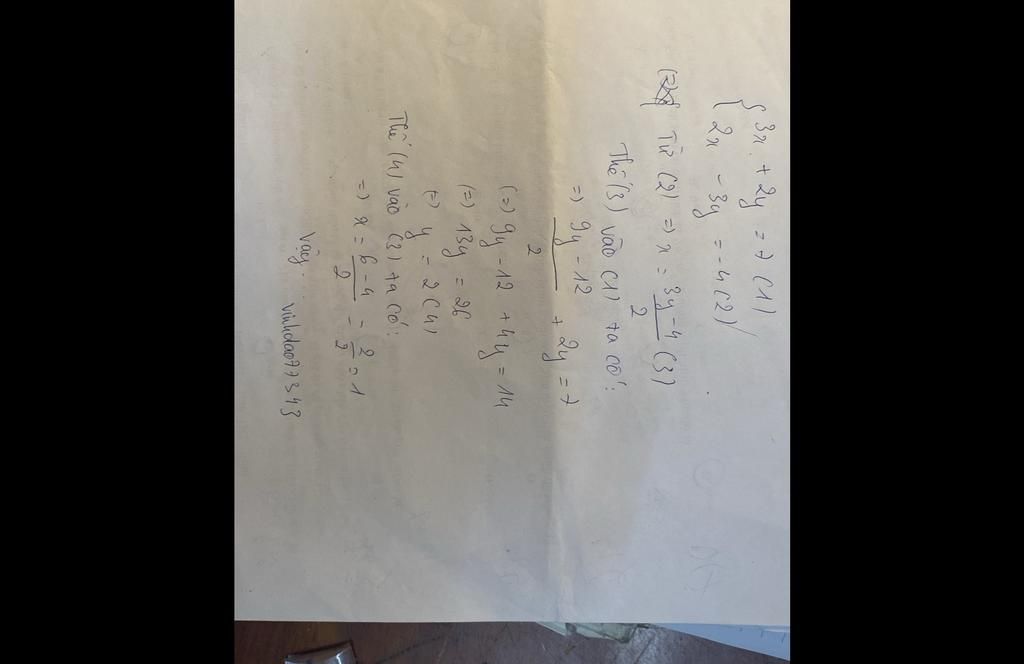 { 3x + 2y = 7 (1)
2x - 3y = -4 (2)
Từ (2) => x = 3y-4/2 (3)
Thế (3) vào (1) ta có:
=> 9y-12/2 + 2y = 7
(=) 9y-12 + 4y = 14
(=) 13y = 26
(=) y = 2 (4)
Thế (4) vào (3) ta có:
=> x = 6-4/2 = 2/2 = 1
Vậy: vinhdao77343